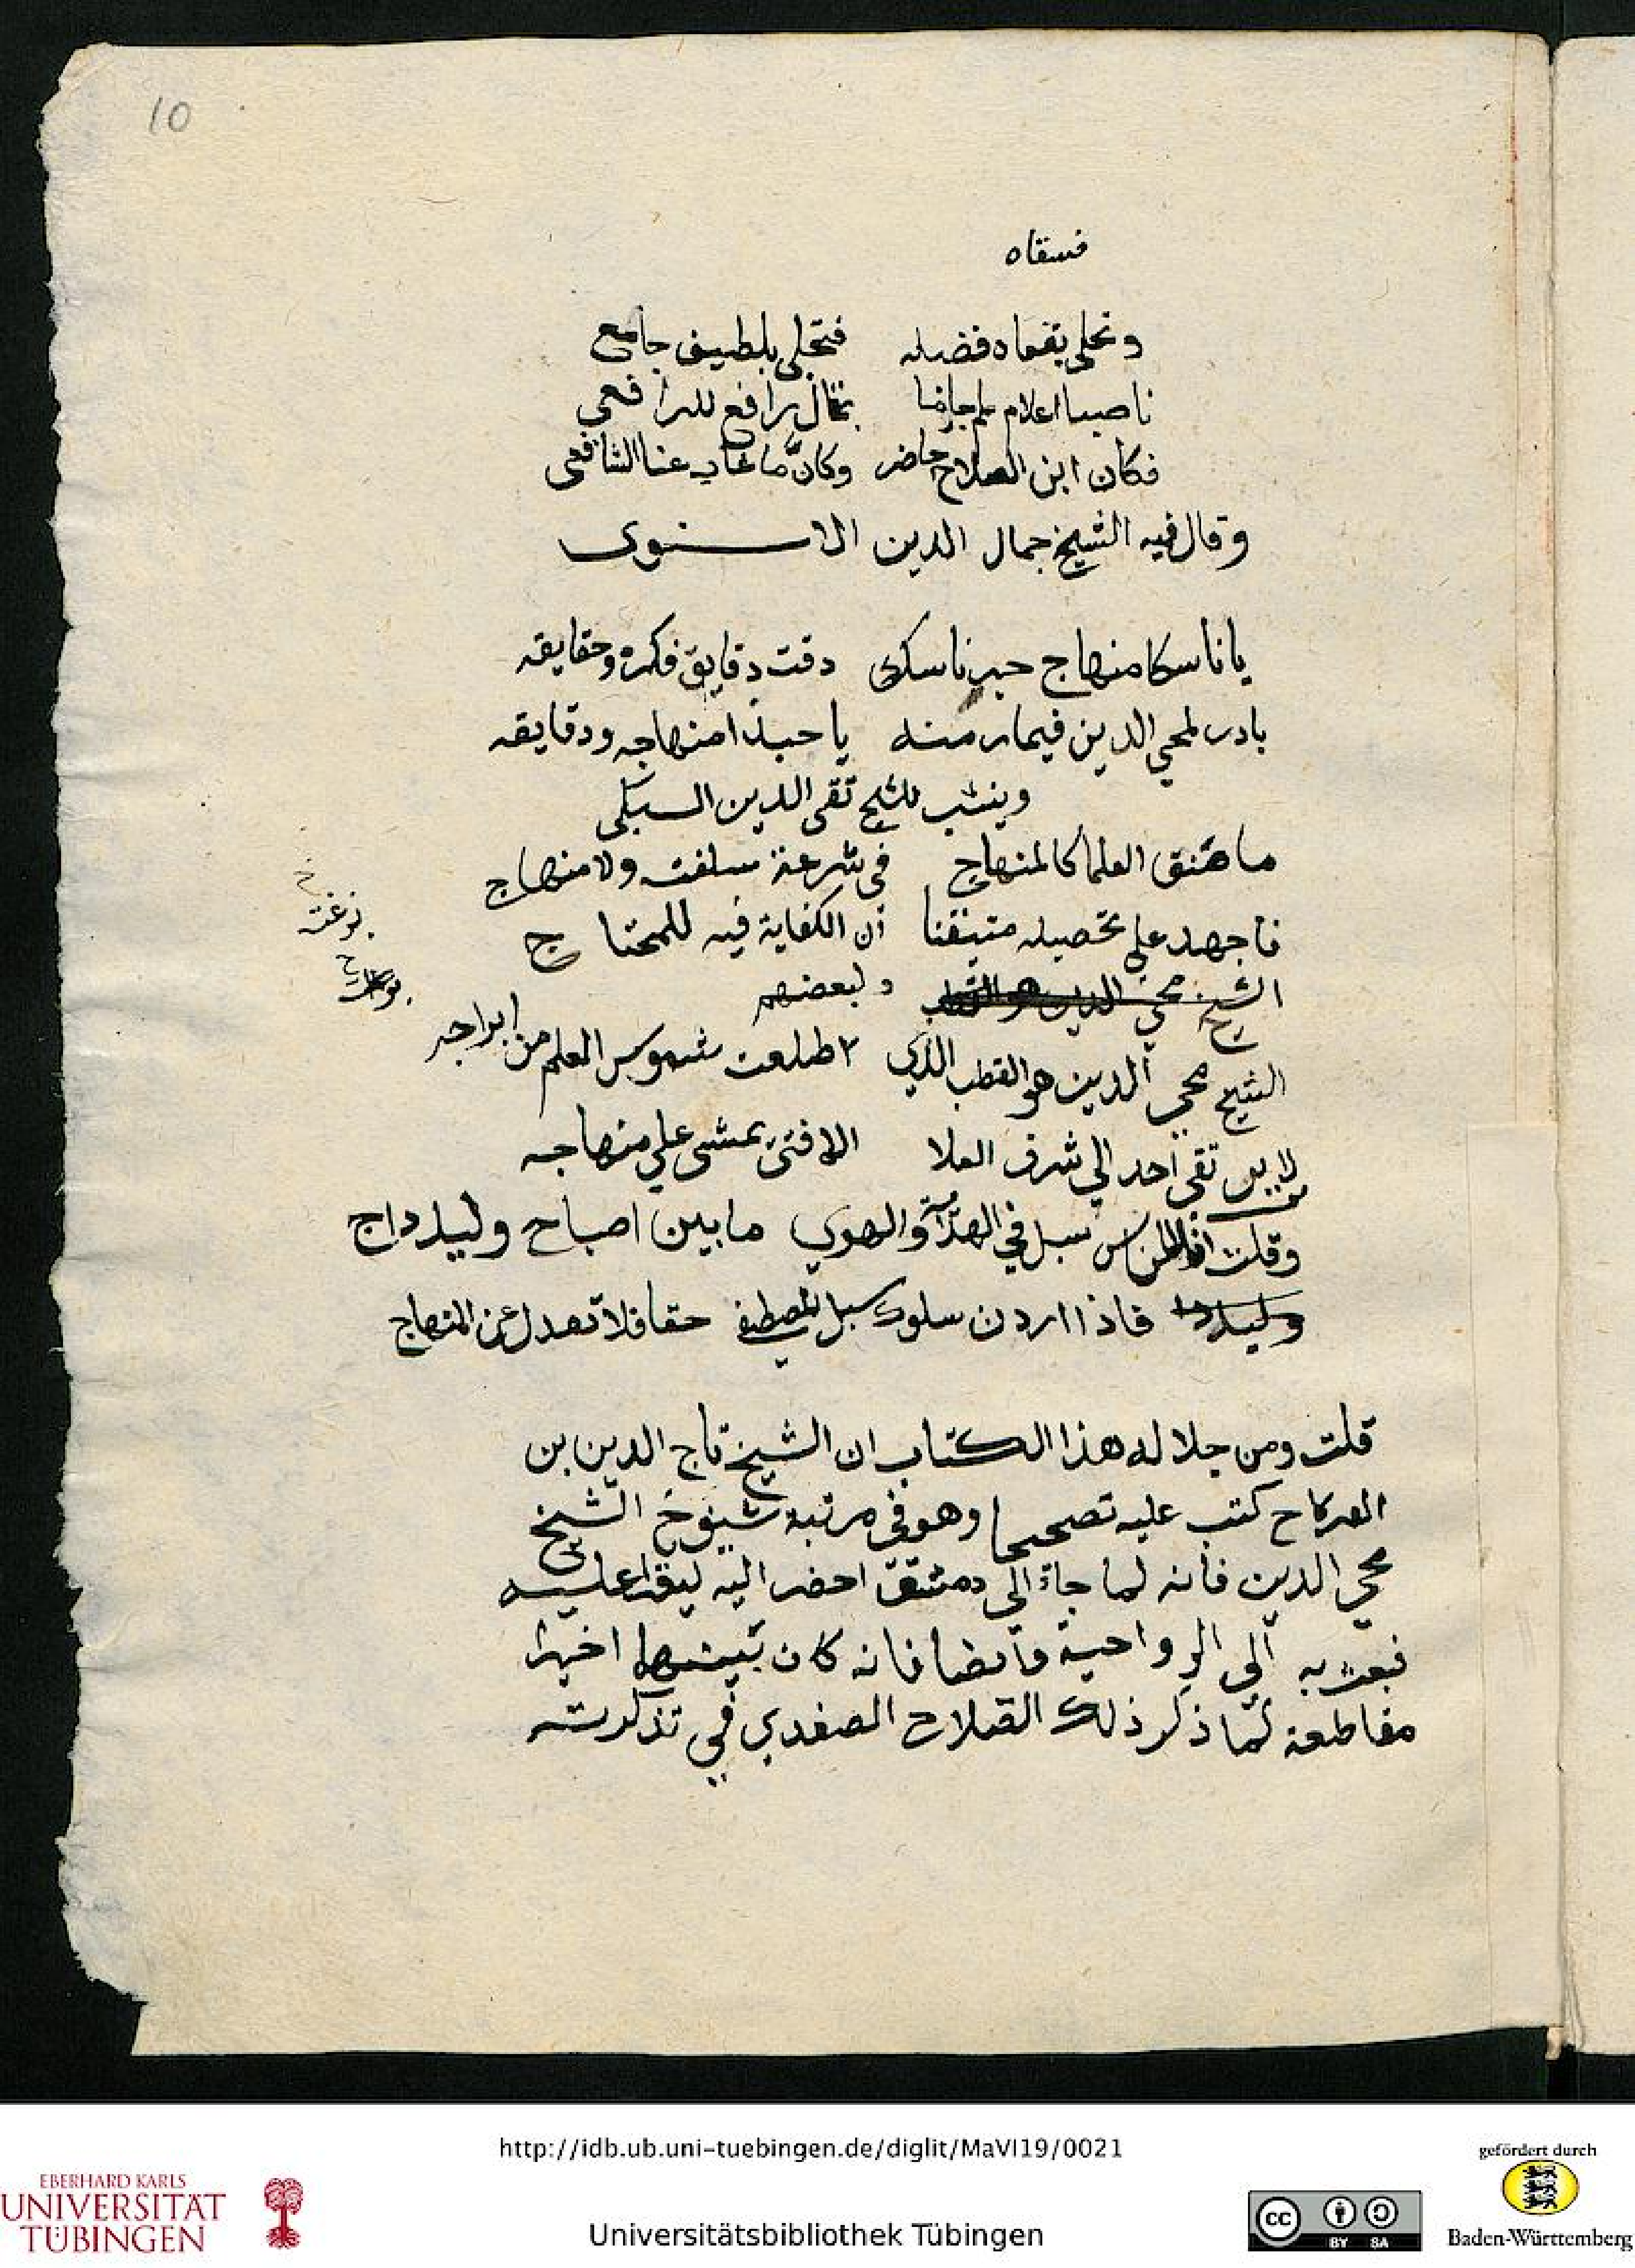 10
فسقاه
وتحلى بقفاه فضله فتجلى بلطيف جامع
ناصبا اعلام علم جازما بمقال رافع للرافعي
فكان ابن الصلاح حاضر وكأن ما غاب عنا الشافعي
وقال فيه الشيخ جمال الدين الاسنوى
يا ناسكا منهاج حبر ناسك دقت دقايق فكره وحقايقه
بادر لمحي الدين فيما رمته يا حبذا منهاجه ودقايقه
وينسب للشيخ تقى الدين السبكى
ما صنف العلما كالمنهاج فى شرعة سلفت ولا منهاج
فاجهد على تحصيله متيقنا أن الكفاية فيه للمحتاج
الشيخ محي الدين هو القطب ولبعضهم
الشيخ محي الدين هو القطب الذي طلعت شموس العلم من ابراجه
لا يرتقي احد الي شرف العلا الا فتى يمشى علي منهاجه
وقلت للناس سبل في الهدى والهوي ما بين اصباح وليل داج
فاذا اردت سلوك سبل المصطفى حقا فلا تعدل عن المنهاج
قلت ومن جلاله هذا الكتاب ان الشيخ تاج الدين بن
الفركاح كتب عليه تصحيحا وهو فى مرتبة شيوخ الشيخ
محي الدين فانه لما جاء الى دمشق احضر اليه ليقرا عليه
فبعث به الى الرواحية وايضا فانه كان بينهما اخيرا
مقاطعة لما ذكر ذلك الصلاح الصفدي في تذكرته
http://idb.ub.uni-tuebingen.de/diglit/MaVI19/0021
Universitätsbibliothek Tübingen
EBERHARD KARLS
UNIVERSITÄT
TÜBINGEN
cc BY SA
gefördert durch
Baden-Württemberg